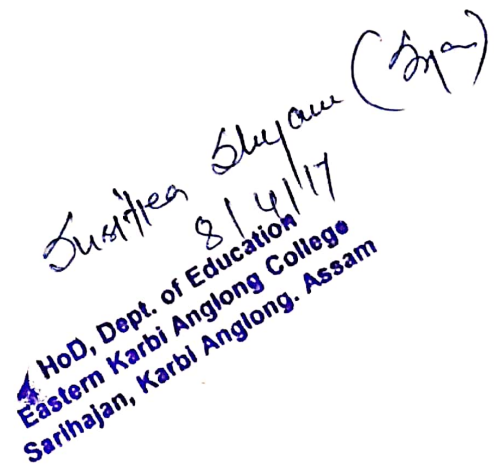 Shyam
8/4/17
HoD, Dept. of Education
Eastern Karbi Anglong College
Sarihajan, Karbi Anglong. Assam